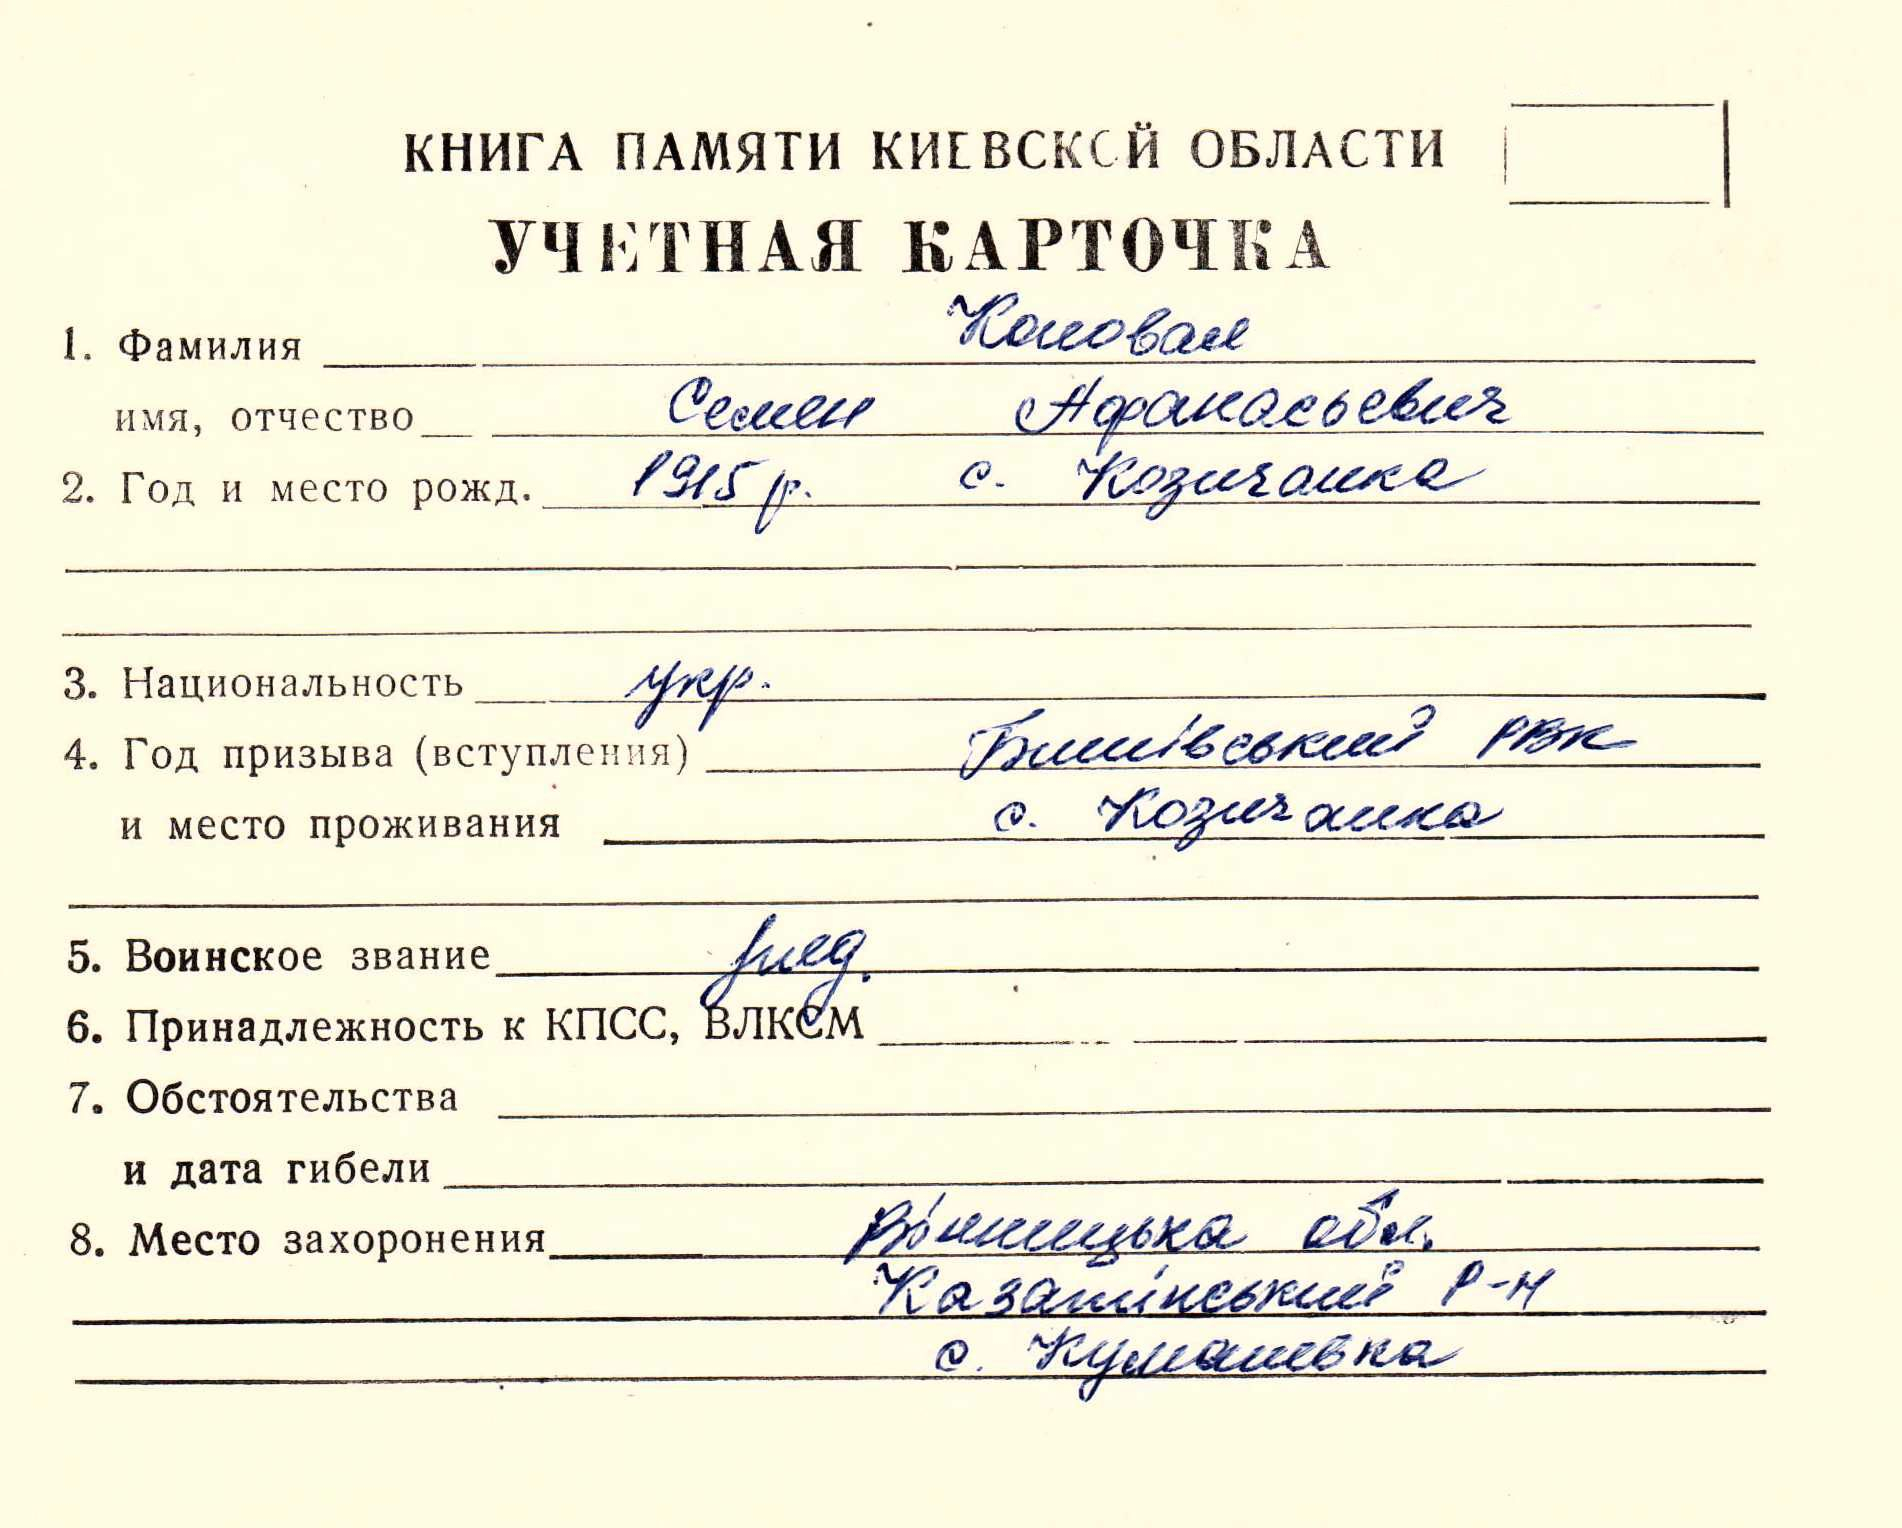 КНИГА ПАМЯТИ КИЕВСКОЙ ОБЛАСТИ
УЧЕТНАЯ КАРТОЧКА
1. Фамилия Коновал
имя, отчество Семен Афанасьевич
2. Год и место рожд. 1915 р. с. Козичанка
3. Национальность укр.
4. Год призыва (вступления) Бишівський РВК
и место проживания с. Козичанка
5. Воинское звание
6. Принадлежность к КПСС, ВЛКСМ
7. Обстоятельства
и дата гибели
8. Место захоронения Вінницька обл.
Казатінський р-н
с. Кумановка